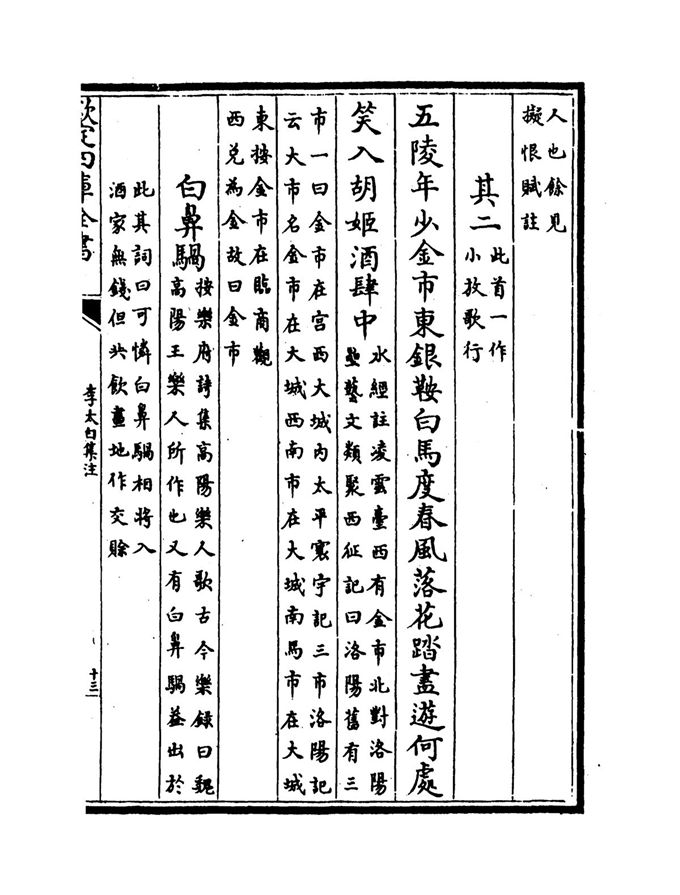 人也餘見
擬恨賦註
其二此首一作
小放歌行
五陵年少金市東銀鞍白馬度春風落花踏盡遊何處
笑入胡姬酒肆中水經註凌雲臺西有金市北對洛陽
壘藝文類聚西征記曰洛陽舊有三
市一曰金市在宫西大城内太平寰宇記三市洛陽記
云大市名金市在大城西南市在大城南馬市在大城
東按金市在臨商觀
西兑為金故曰金市
白鼻騧按樂府詩集高陽樂人歌古今樂録曰魏
高陽王樂人所作也又有白鼻騧葢出於
此其詞曰可憐白鼻騧相將入
酒家無錢但共飲畫地作交賒
欽定四庫全書
李太白集注
十三